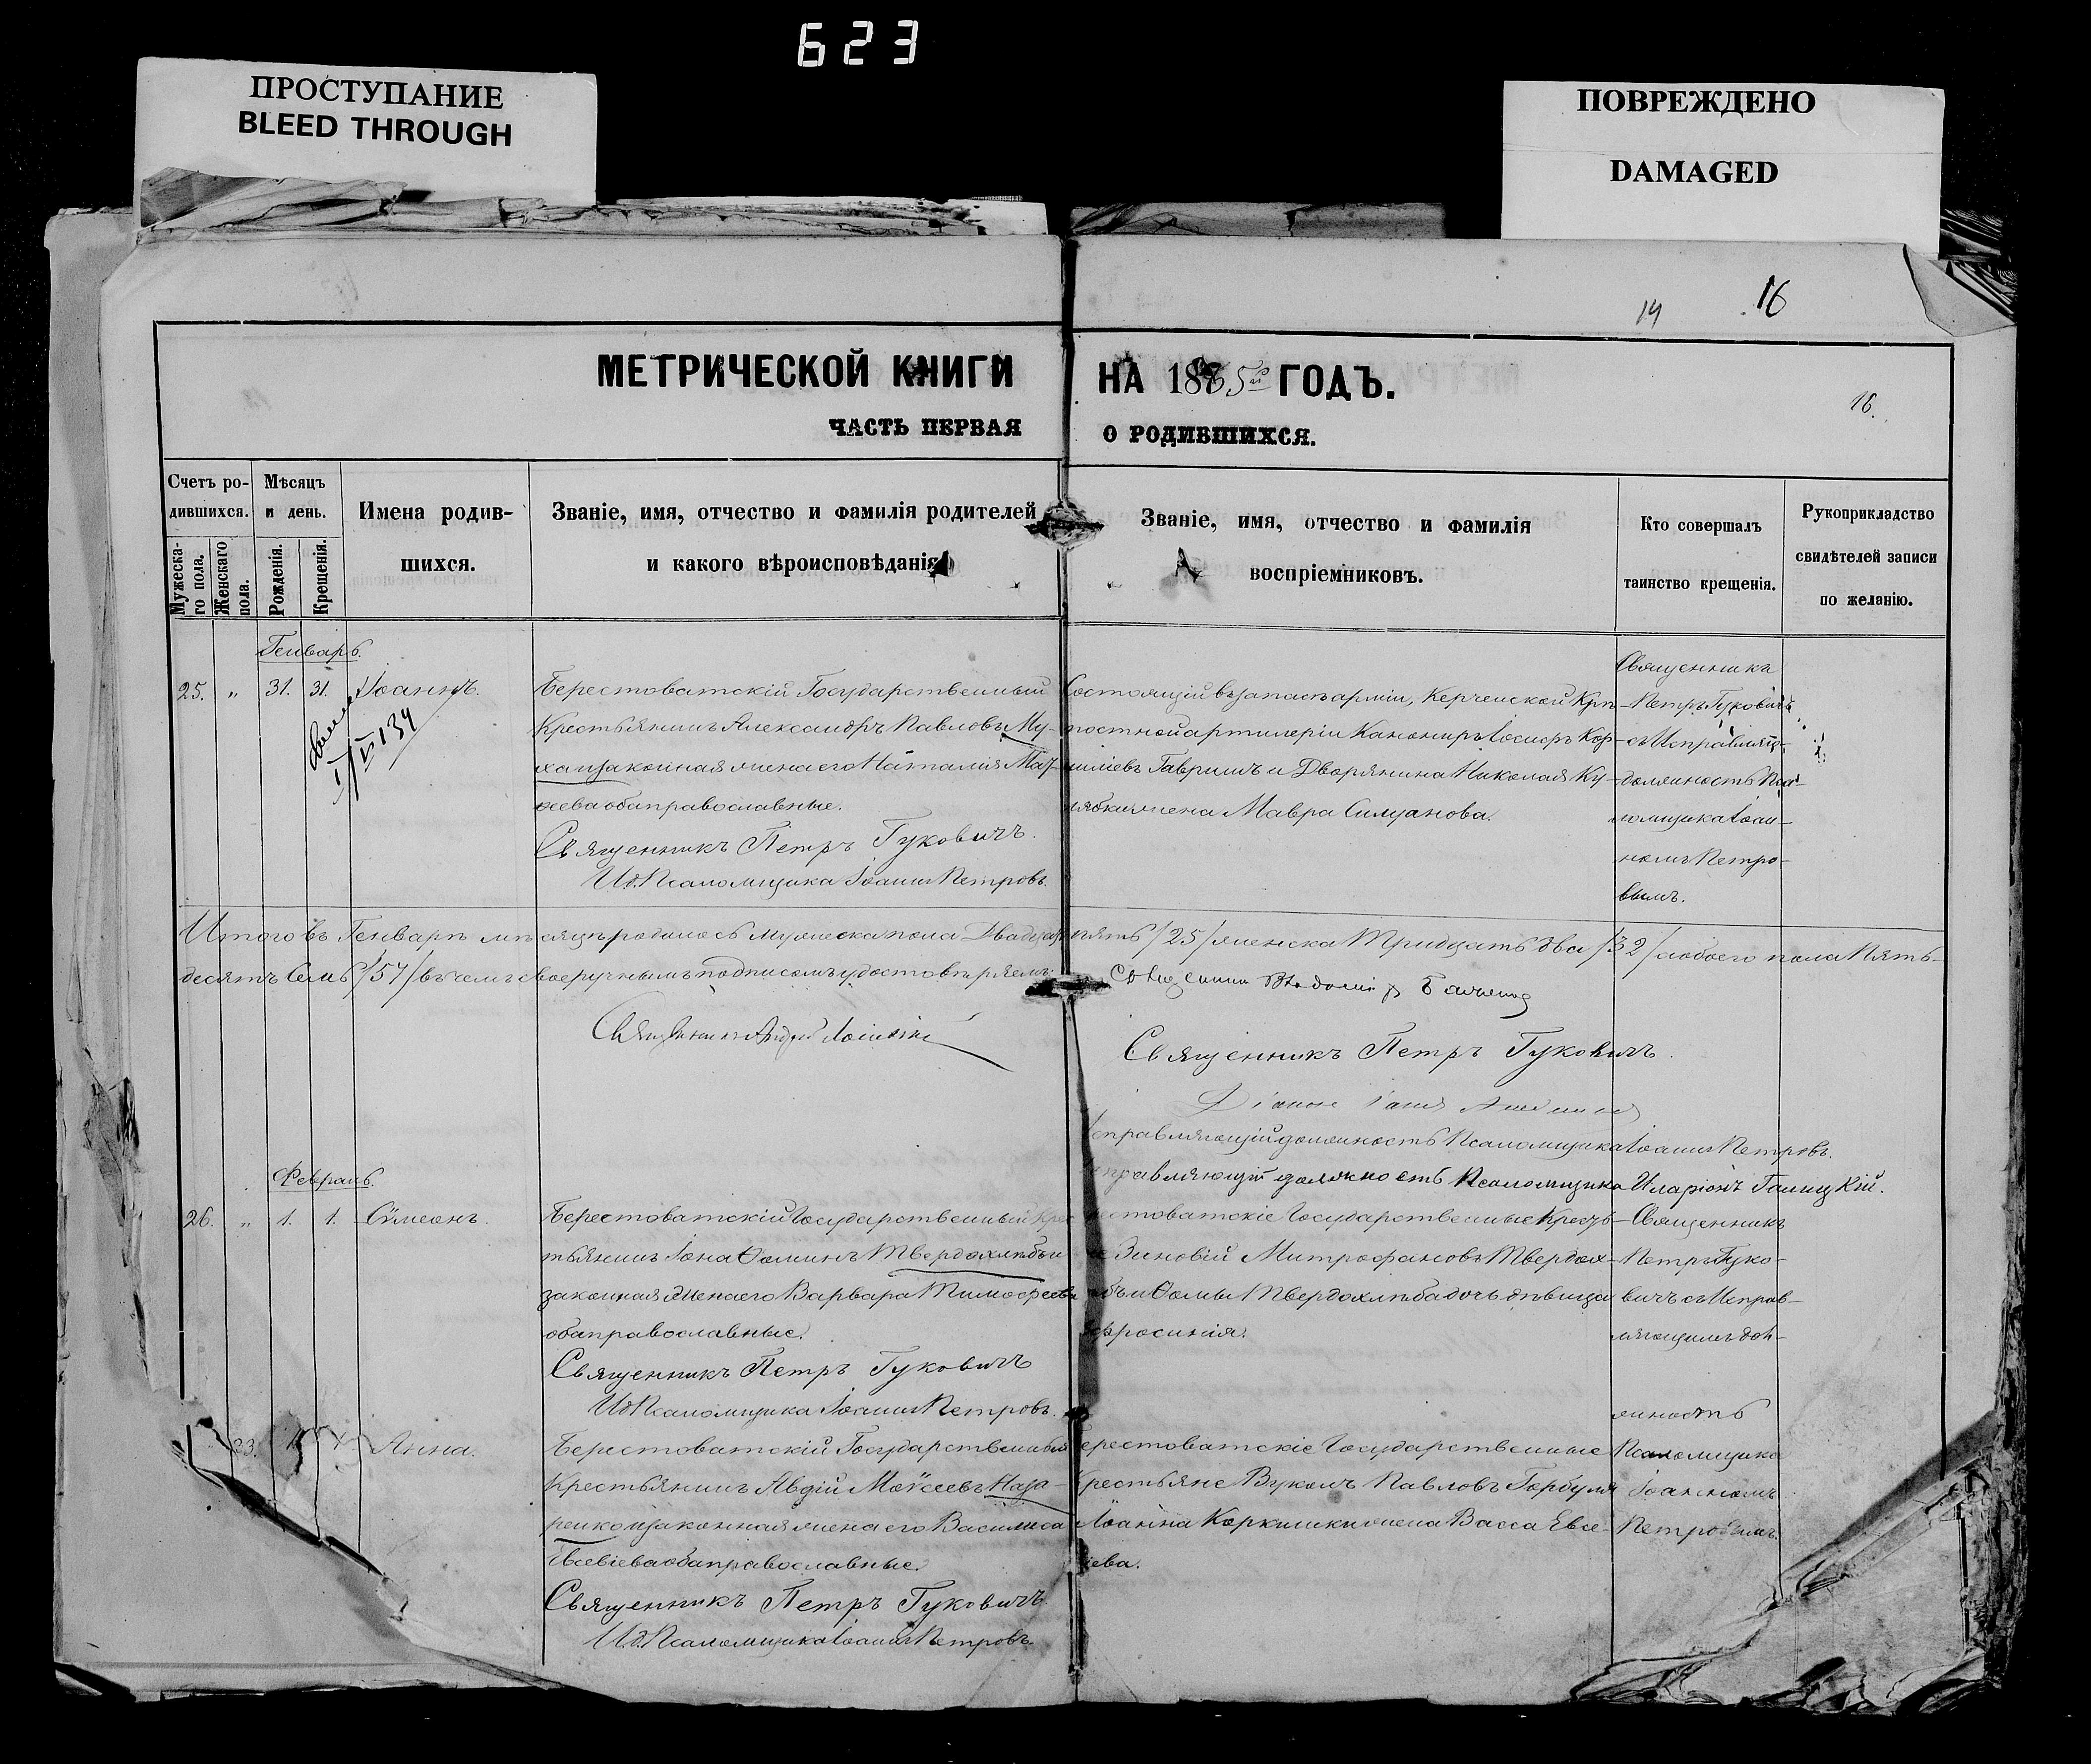 623
ПРОСТУПАНИЕ
BLEED THROUGH
ПОВРЕЖДЕНО
DAMAGED
14
16
МЕТРИЧЕСКОЙ КНИГИ НА 1885 ГОДЪ.
16.
ЧАСТЬ ПЕРВАЯ О РОДИВШИХСЯ.
Счетъ ро-
дившихся.
Мужеска-
го пола.
Женскаго
пола.
Мѣсяцъ
и день.
Рожденія.
Крещенія.
Имена родив-
шихся.
Званіе, имя, отчество и фамилія родителей
и какого вѣроисповѣданія
Званіе, имя, отчество и фамилія
воспріемниковъ.
Кто совершалъ
таинство крещенія.
Рукоприкладство
свидѣтелей записи
по желанію.
Генварь.
25. „ 31. 31. Іоаннъ.
134
Берестоватскій Государственный
Крестьянинъ Александръ Павловъ Му-
ха и законная жена его Наталія Мат-
ѳеева оба православные.
Священникъ Петръ Гуковичъ.
И. д. Псаломщика Іоаннъ Петровъ.
Состоящій въ запасѣ арміи, Керченской Крѣ-
постной артилеріи Канониръ Іосифъ Кор-
ниліевъ Гавришъ и Дворянина Николая Ку-
лябки жена Мавра Силуанова.
Священникъ
Петръ Гуковичъ
съ Исправляющ-
должность Пса-
ломщика Іоан-
номъ Петро-
вымъ.
Итого въ Генварѣ мѣсяцѣ родилось мужеска пола Двадцать пять /25/ женска Тридцать два /32/ обоего пола Пять-
десятъ Семь /57/ въ чемъ своеручнымъ подписомъ удостовѣряемъ:
Священникъ
Священникъ Андрей
Священникъ Петръ Гуковичъ.
Исправляющій должность Псаломщика Іоаннъ Петровъ.
Исправляющій должность Псаломщика Иларіонъ Галицкій.
Февраль.
26. „ 1. 1. Сѵмеонъ.
Берестоватскій Государственный Крес
тьянинъ Іона Ѳоминъ Твердохлѣбъ и
законная жена его Варвара Тимофеева
оба православные.
Священникъ Петръ Гуковичъ
И. д. Псаломщика Іоаннъ Петровъ.
Берестоватскіе Государственные Кресть-
яне Зиновій Митрофановъ Твердох-
лѣбъ и Ѳомы Твердохлѣба дочь дѣвица
Ефросинія.
Священникъ
Петръ Гуко-
вичъ съ Исправ-
ляющимъ дол-
жность
Псаломщика
Іоанномъ
Петровымъ.
23. Анна.
Берестоватскій Государственный
Крестьянинъ Авдій Моѵсеевъ Наза-
ренко и законная жена его Василиса
Евсевіева оба православные.
Священникъ Петръ Гуковичъ
И. д. Псаломщика Іоаннъ Петровъ.
Берестоватскіе Государственные
Крестьяне Вуколъ Павловъ Горбуля
и Іоанна Коркишки жена Васса Евсе-
віева.